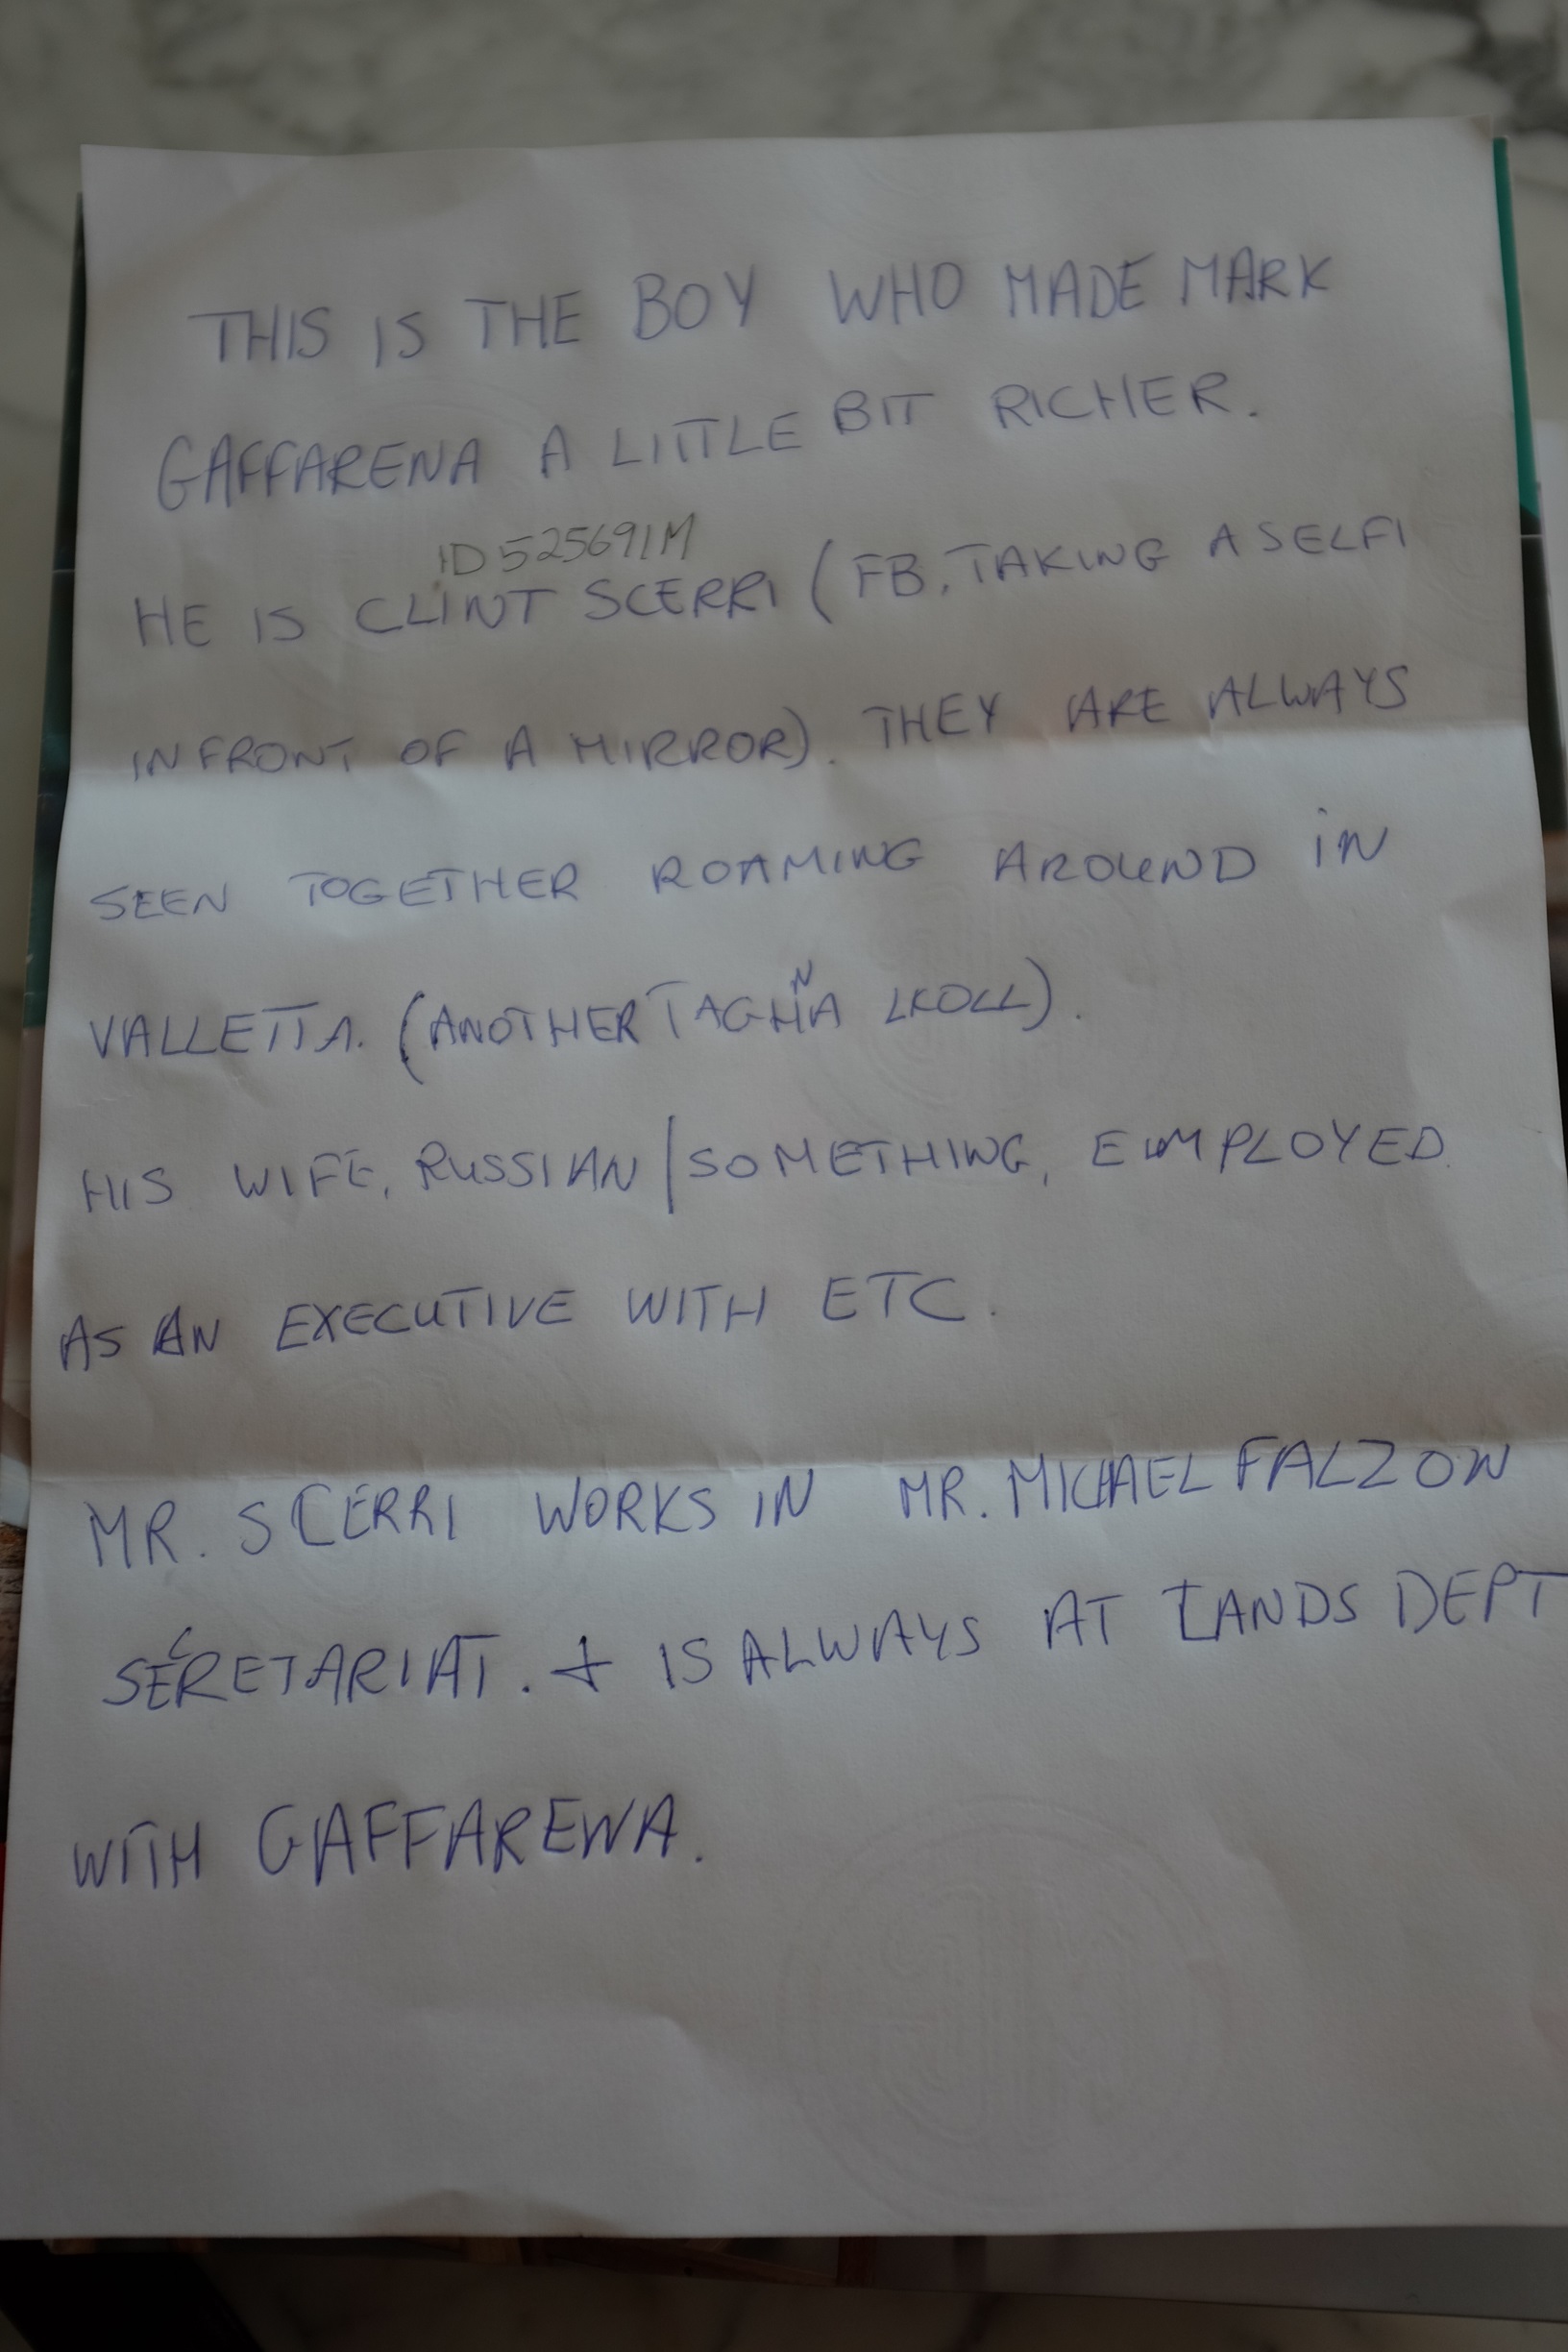 THIS IS THE BOY WHO MADE MARK
GAFFARENA A LITTLE BIT RICHER.
ID 525691M
HE IS CLINT SCERRI (FB, TAKING A SELFI
IN FRONT OF A MIRROR). THEY ARE ALWAYS
SEEN TOGETHER ROAMING AROUND IN
VALLETTA. (ANOTHER TAGHNA LKOLL).
HIS WIFE, RUSSIAN/SOMETHING, EMPLOYED
AS AN EXECUTIVE WITH ETC.
MR. SCERRI WORKS IN MR. MICHAEL FALZON
SECRETARIAT. + IS ALWAYS AT LANDS DEPT
WITH GAFFARENA.